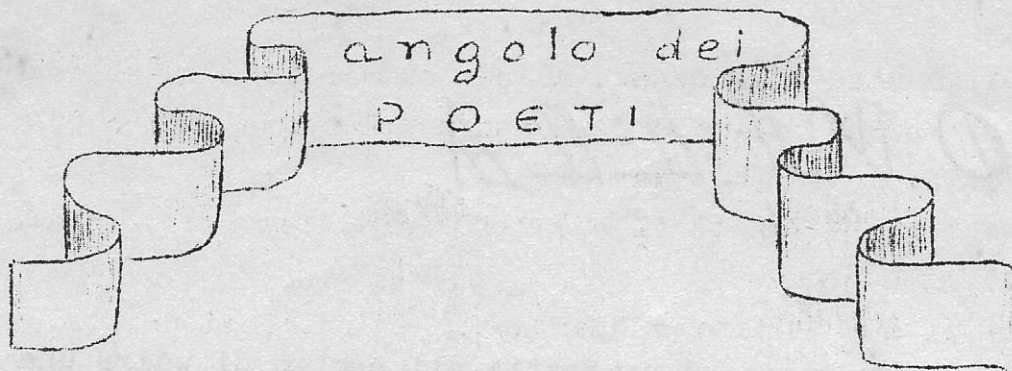 angolo dei
POETI